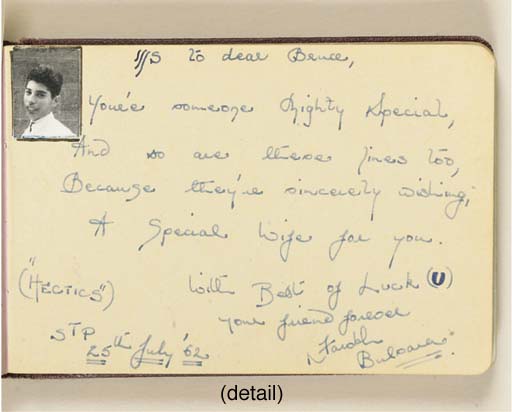 to dear Bruce,
You're someone mighty special,
And so are these lines too,
Because they're sincerely wishing,
A Special Wife for you.
("HECTICS") With Best of Luck (U)
your friend forever
STP Farokh
25th July '62 Bulsara.
(detail)